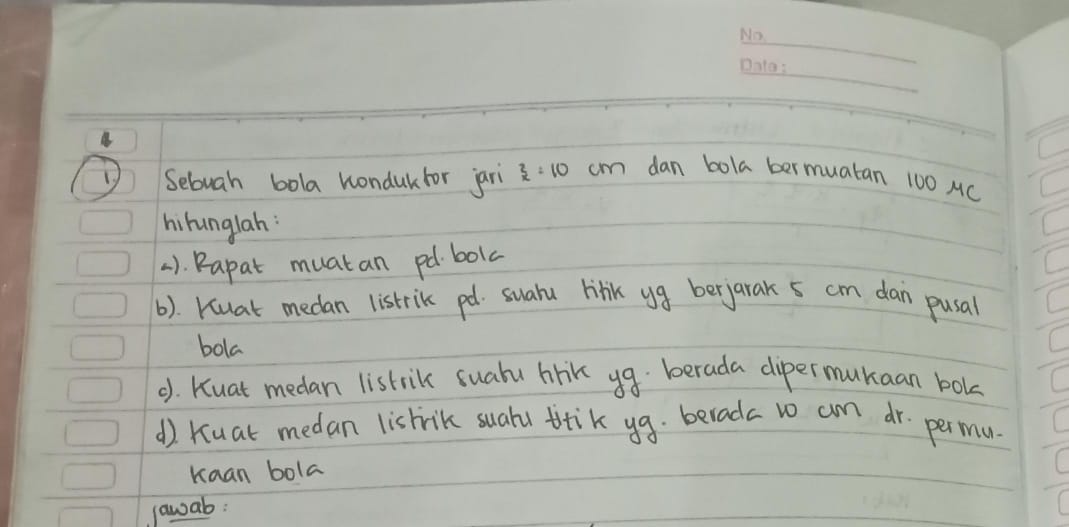 No.
Date:
1 Sebuah bola konduktor jari ²: 10 cm dan bola bermuatan 100 μC
hitunglah:
a). Rapat muatan pd. bola
b). Kuat medan listrik pd. suatu titik yg berjarak 5 cm dari pusat
bola
c). Kuat medan listrik suatu titik yg. berada dipermukaan bola
d). Kuat medan listrik suatu titik yg. berada 10 cm dr. permu-
kaan bola
Jawab: